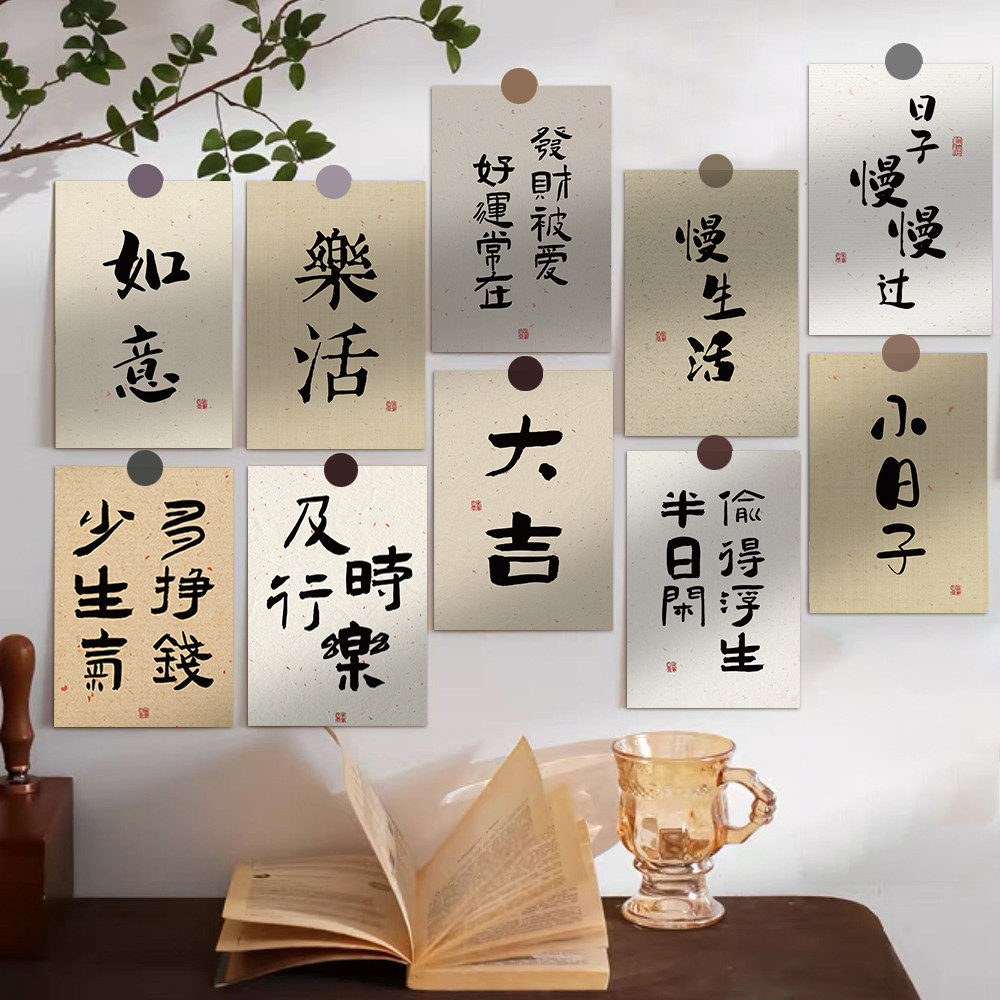 如意
樂活
發財被爱
好運常在
慢生活
日子
慢慢
过
多挣錢
少生氣
及時
行樂
大吉
偷得浮生
半日閑
小日子